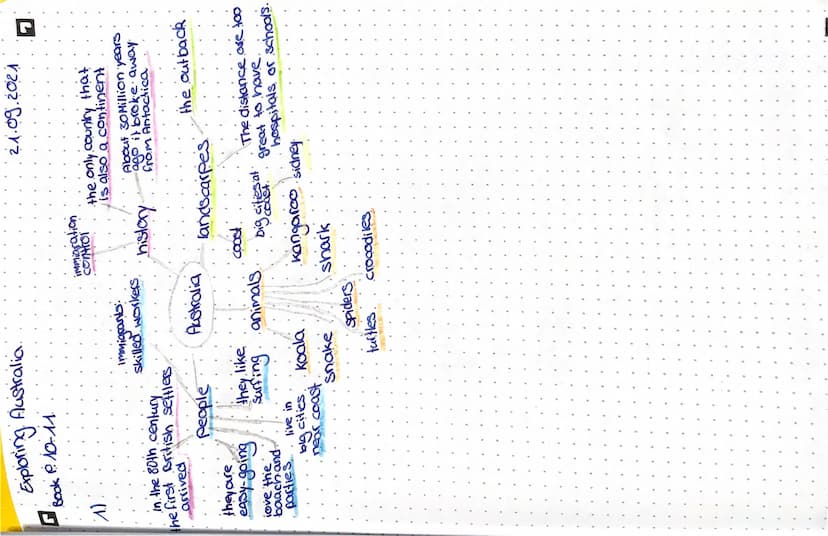 Exploring Australia
21.09.2021
Book P. 10-11
1)
Australia
history
immigration
control
the only country that
is also a continent
About 30 Million years
ago it broke away
from Antactica
landscarpes
the outback
The distance are too
great to have
hospitals or schools.
coast
big cities at
coast
sidney
animals
kangaroo
shark
crocodiles
spiders
turtles
snake
koala
People
immigrants:
skilled workers
In the 80th century
the first British settlers
arrived
they are
easy going
love the
baach and
parties
live in
big cities
near coast
they like
surfing